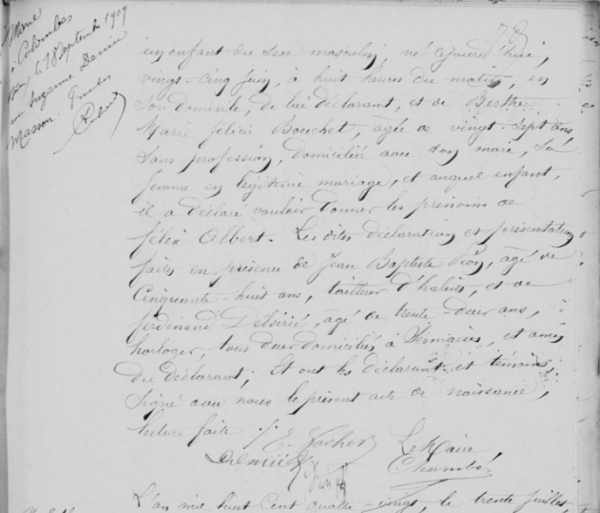 Marié
à Colombes
le 18 Septembre 1909
Suzanne Denise
Masson
un enfant du sexe masculin, né cejourd'hui,
vingt-cinq Juin, à huit heures du matin, en
son domicile, de lui déclarant, et de Berthe
Marie félicie Bouchet, agée de vingt-sept ans,
sans profession, domiciliée avec son mari, sa
femme en légitime mariage, et auquel enfant,
il a déclaré vouloir donner les prénoms de
félix Albert. Les dites déclaration et présentation
faites en présence de Jean Baptiste agé de
Cinquante-huit ans, tailleur d'habits, et de
ferdinand agé de trente-deux ans,
horloger, tous deux domiciliés à et amis
du déclarant; Et ont les déclarant et témoins
signé avec nous le présent acte de naissance,
lecture faite.
Le Maire
L'an mil huit Cent quatre-vingt, le trente Juillet,